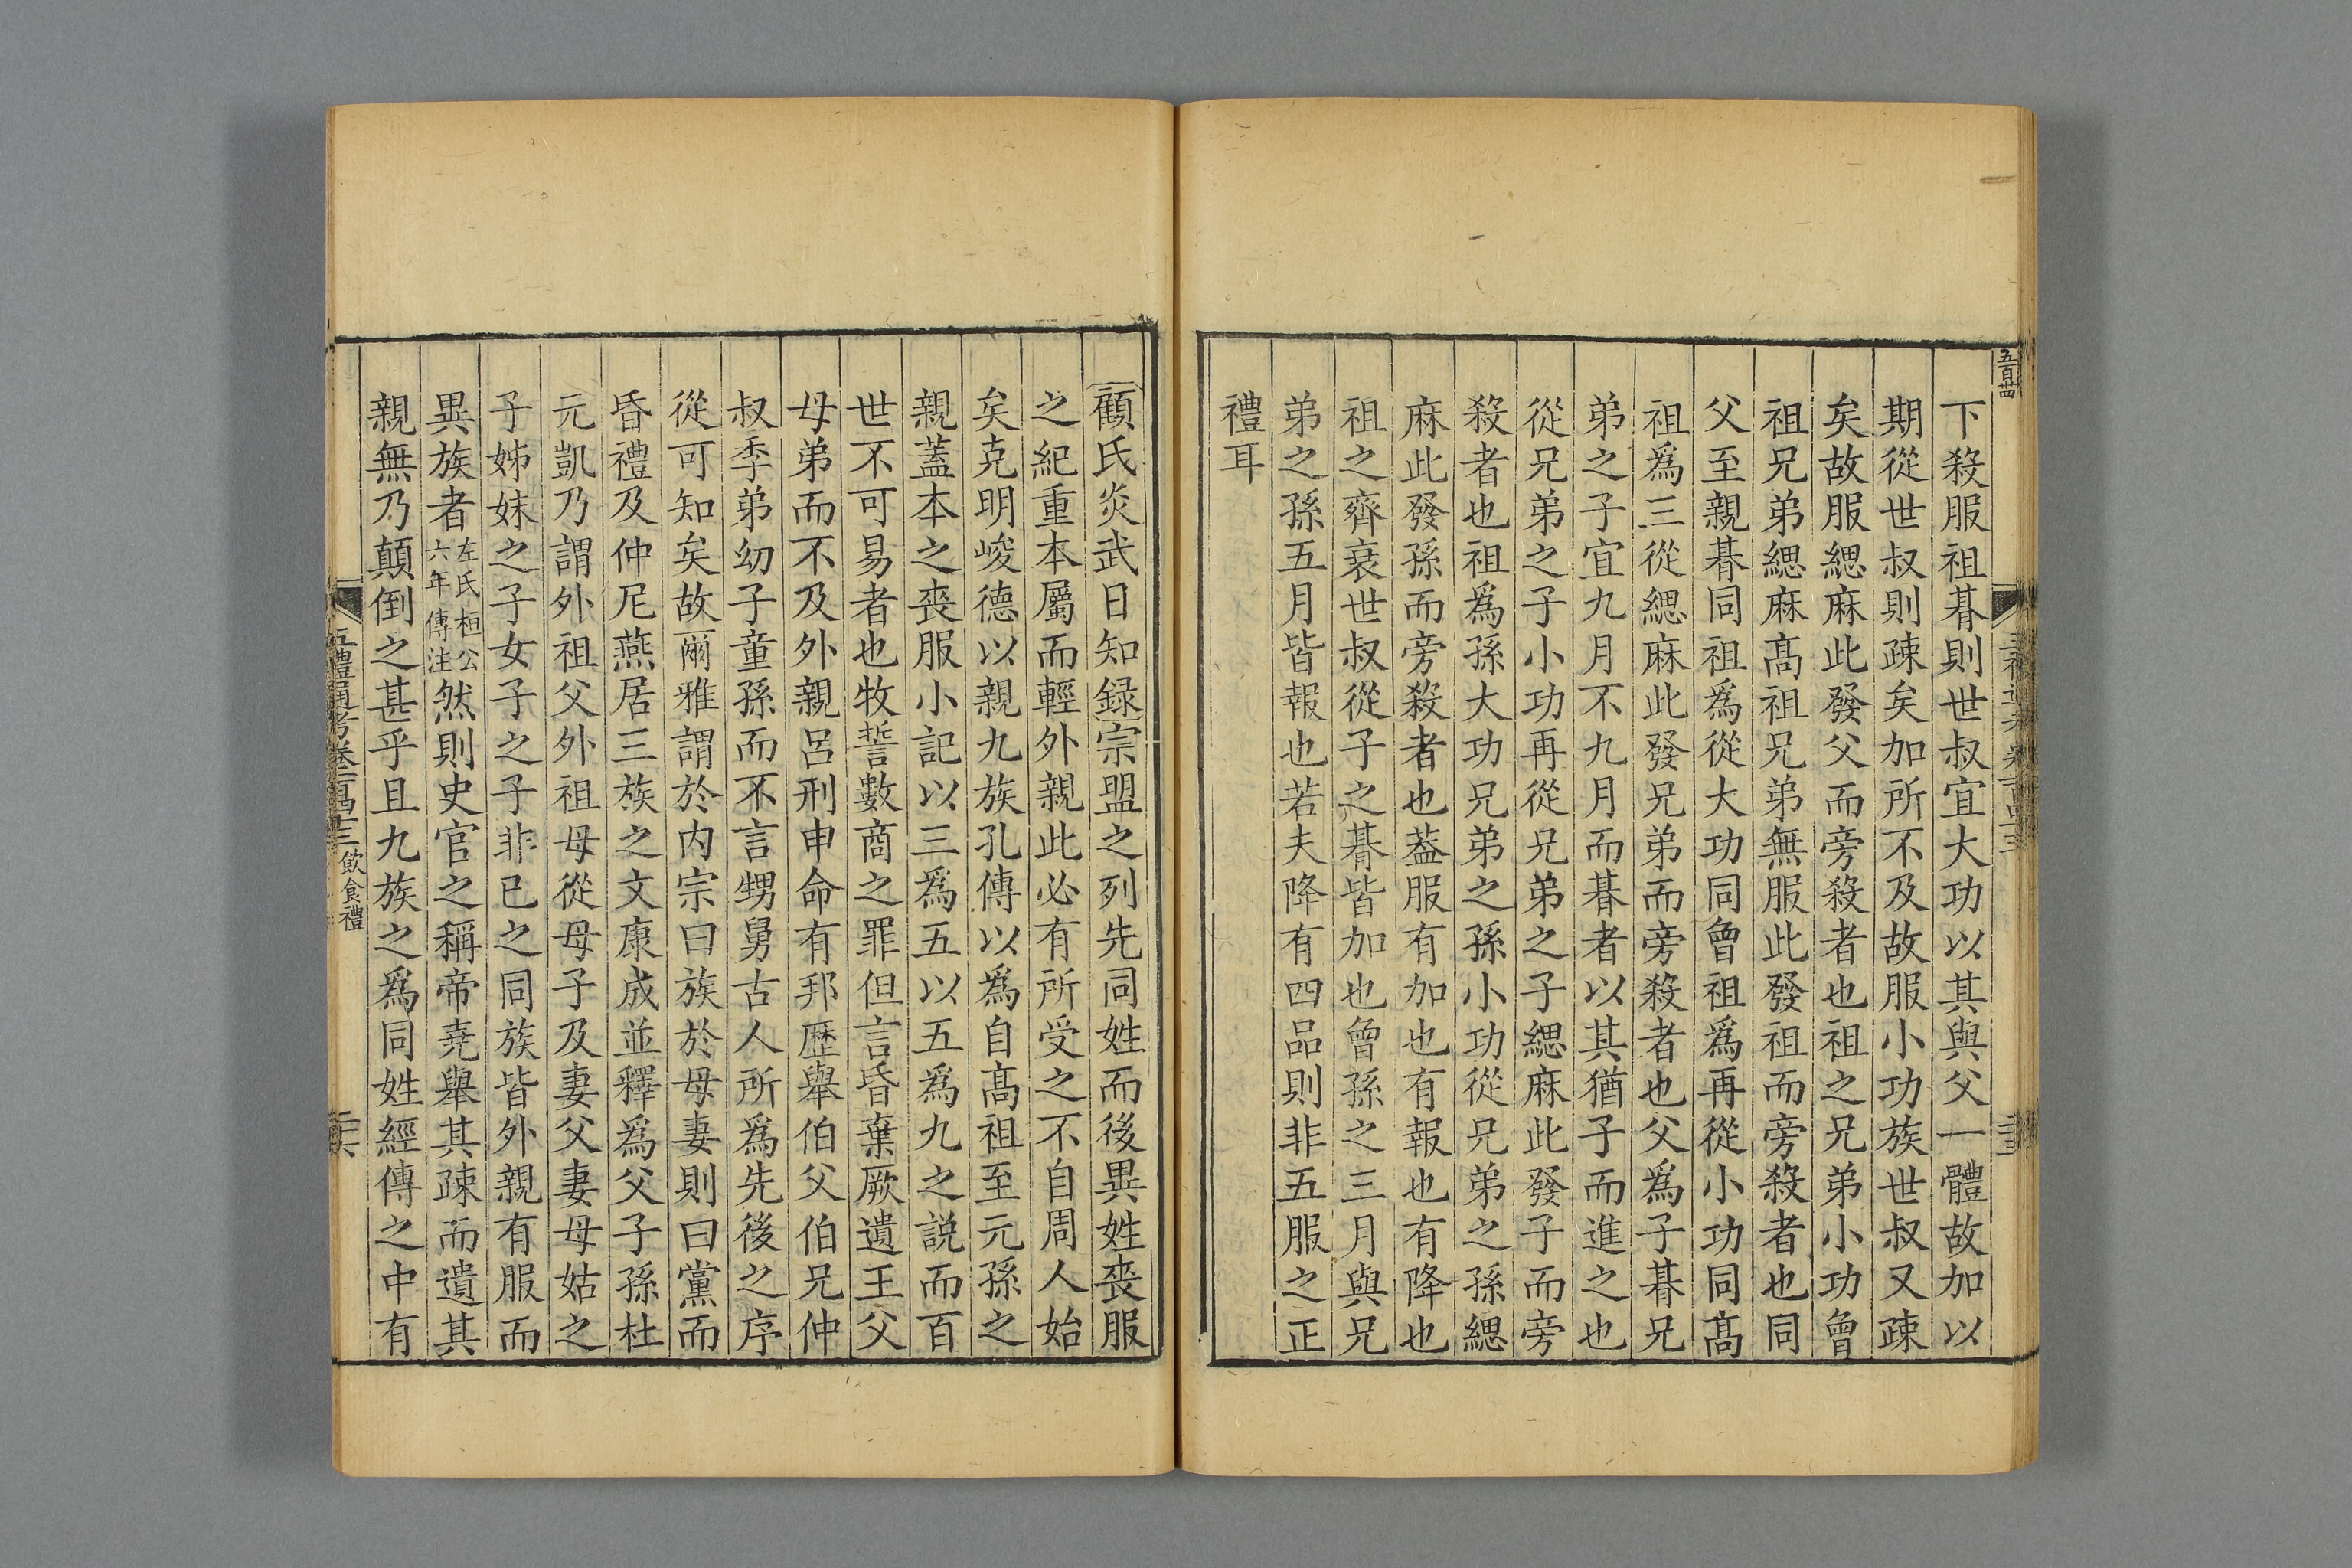 下殺服祖朞則世叔宜大功以其與父一體故加以
期從世叔則疎矣加所不及故服小功族世叔又疎
矣故服緦麻此發父而旁殺者也祖之兄弟小功曾
祖兄弟緦麻髙祖兄弟無服此發祖而旁殺者也同
父至親朞同祖爲從大功同曾祖爲再從小功同髙
祖爲三從緦麻此發兄弟而旁殺者也父爲子朞兄
弟之子宜九月不九月而朞者以其猶子而進之也
從兄弟之子小功再從兄弟之子緦麻此發子而旁
殺者也祖爲孫大功兄弟之孫小功從兄弟之孫緦
麻此發孫而旁殺者也葢服有加也有報也有降也
祖之齊衰世叔從子之朞皆加也曾孫之三月與兄
弟之孫五月皆報也若夫降有四品則非五服之正
禮耳
顧氏炎武日知録宗盟之列先同姓而後異姓喪服
之紀重本屬而輕外親此必有所受之不自周人始
矣克明峻德以親九族孔傳以爲自髙祖至元孫之
親蓋本之喪服小記以三爲五以五爲九之説而百
世不可易者也牧誓數商之罪但言昏棄厥遺王父
母弟而不及外親呂刑申命有邦歴舉伯父伯兄仲
叔季弟幼子童孫而不言甥舅古人所爲先後之序
從可知矣故爾雅謂於内宗曰族於母妻則曰黨而
昏禮及仲尼燕居三族之文康成並釋爲父子孫杜
元凱乃謂外祖父外祖母從母子及妻父妻母姑之
子姊妹之子女子之子非已之同族皆外親有服而
異族者左氏桓公六年傳注然則史官之稱帝堯舉其疎而遺其
親無乃顛倒之甚乎且九族之爲同姓經傳之中有
五禮通考卷一百四十三 飲食禮